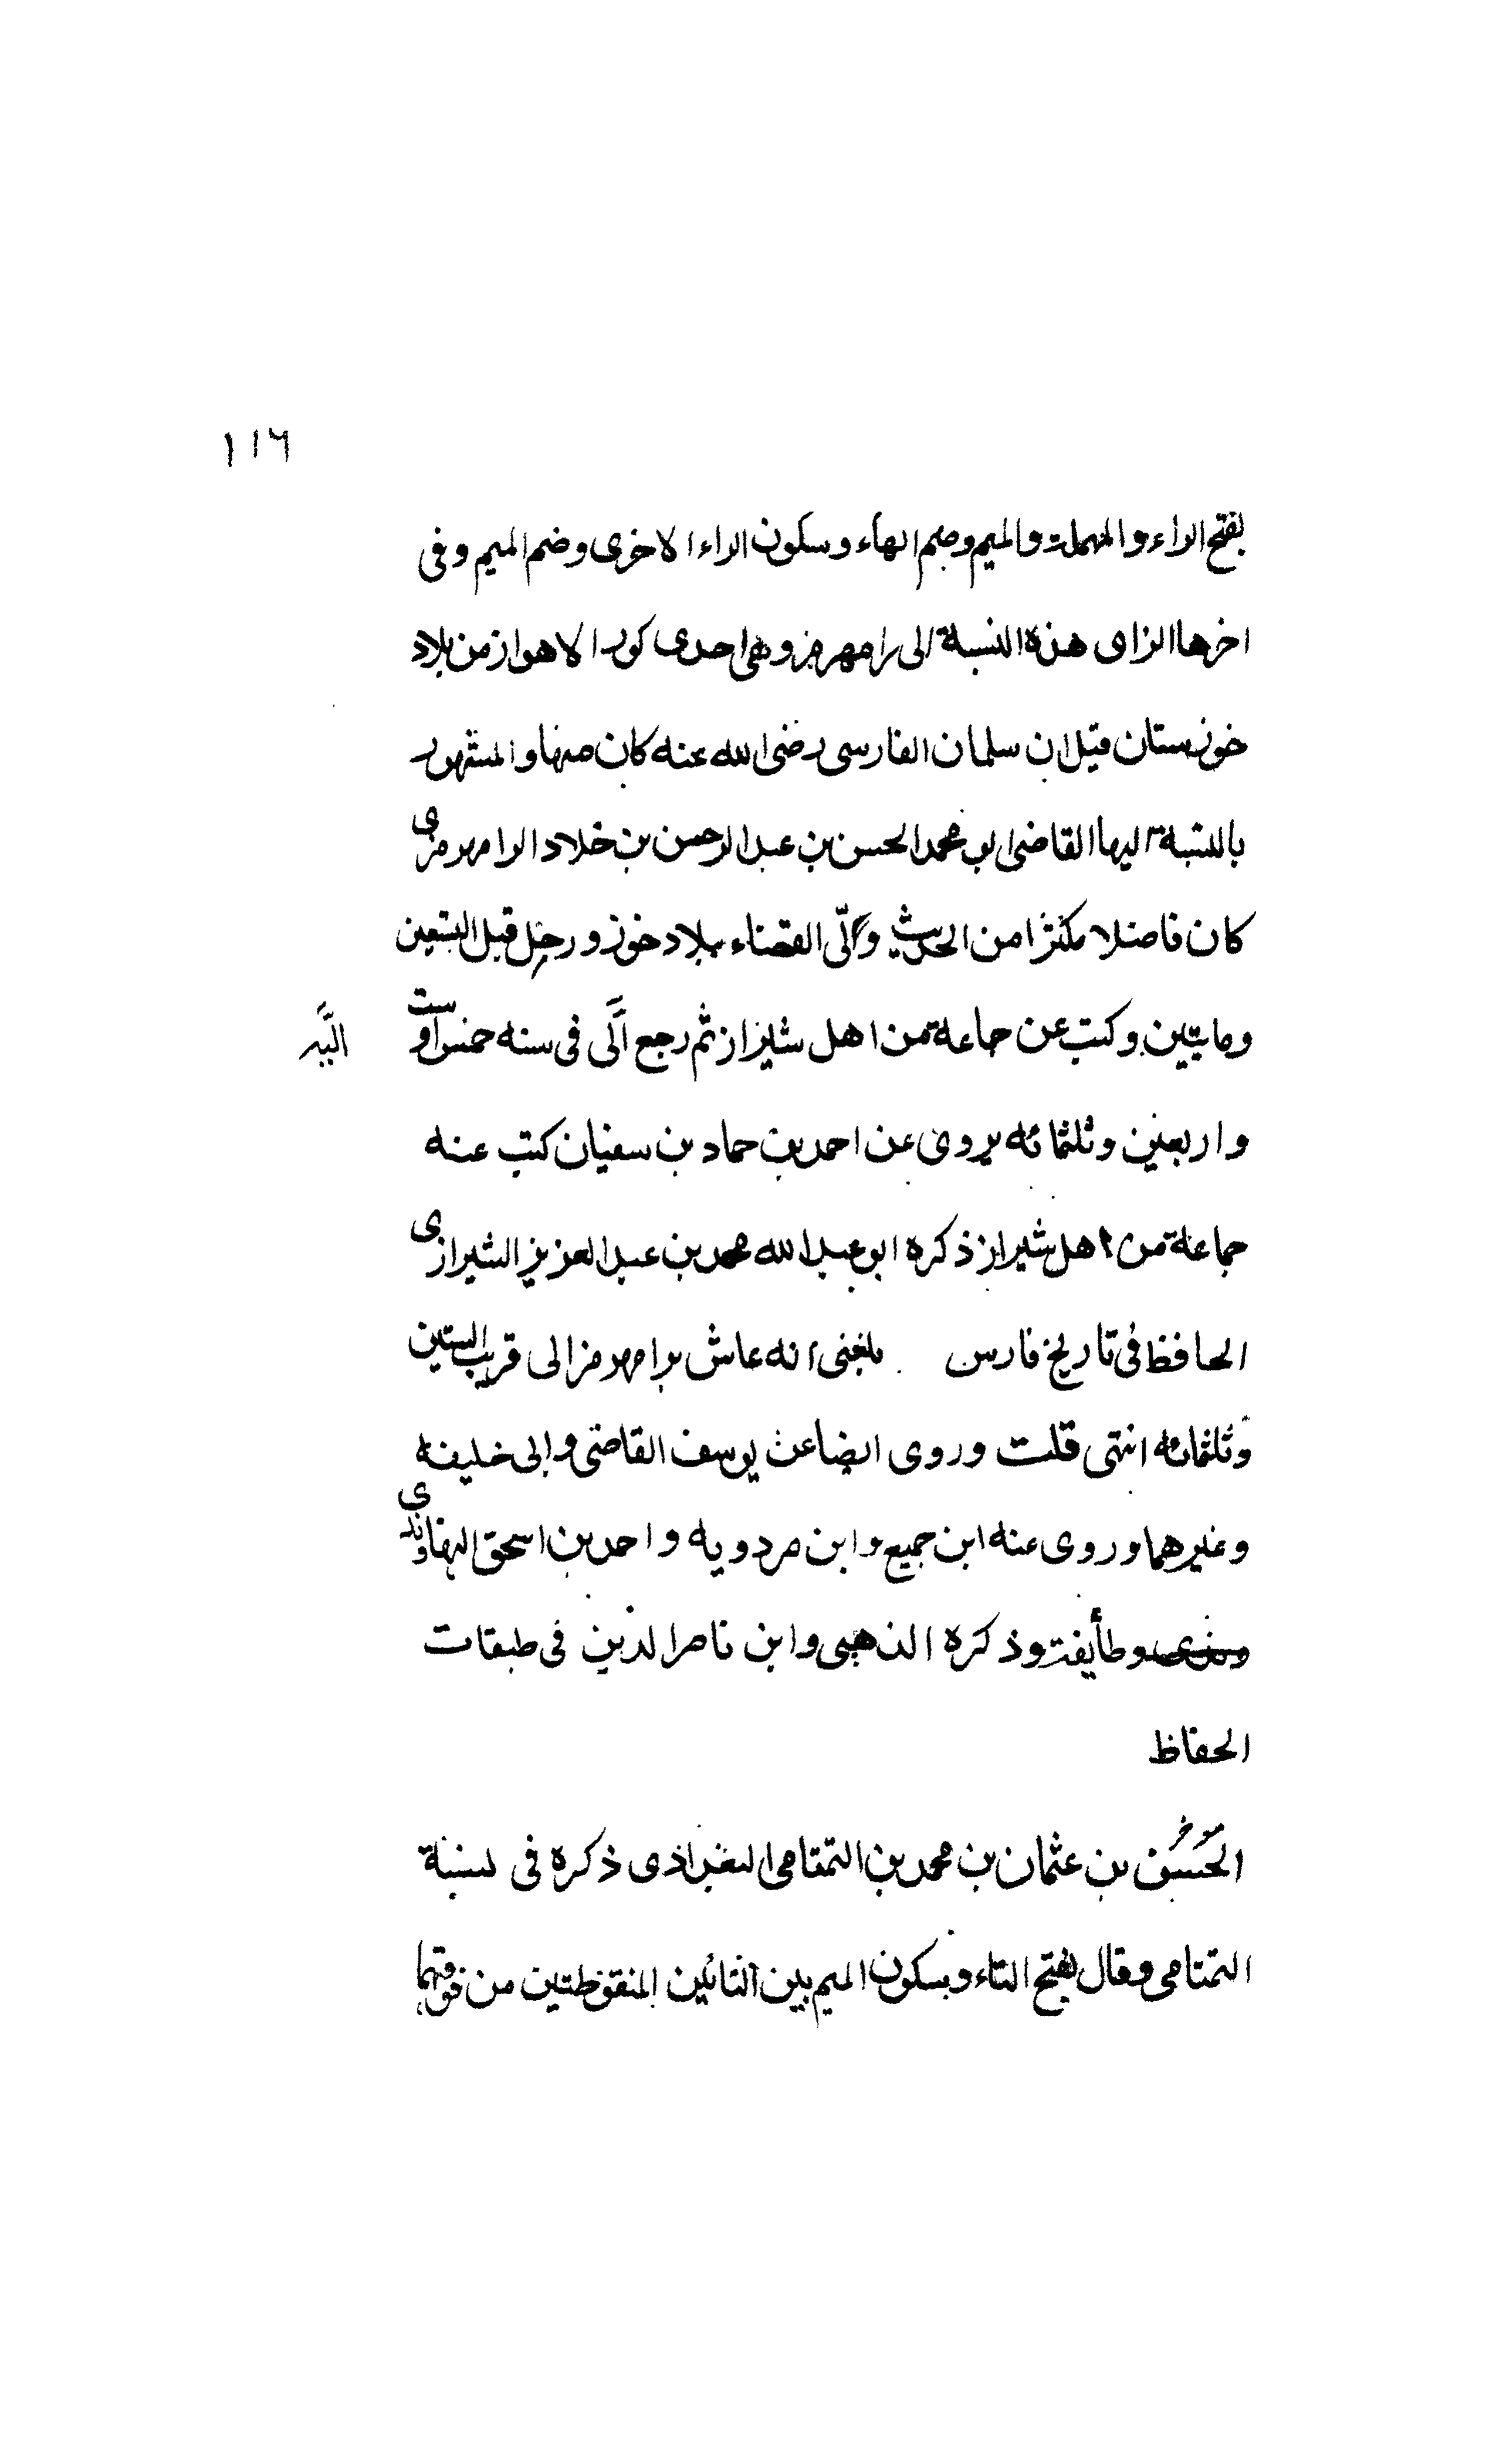 ١١٦
بفتح الراء والمهملة والميم وضم الهاء وسكون الراء الاخرى وضم الميم وفى
اخرها الزاى هذه النسبة الى رامهرمز وهى احدى كور الاهواز من بلاد
خوزستان قيل ان سلمان الفارسى رضى الله عنه كان منها والمشهور
بالنسبة اليها القاضى ابو محمد الحسن بن عبد الرحمن بن خلاد الرامهرمزى
كان فاضلا مكثرا من الحديث ولّى القضاء ببلاد خوز ورحل قبل التسعين
ومايتين وكتب عن جماعة من اهل شيراز ثم رجع الَّى فى سنه خمس او ست
اليَّهِ
واربعين وثلثمائه يروى عن احمد بن حماد بن سفيان كتب عنه
جماعة من اهل شيراز ذكره ابو عبد الله محمد بن عبد العزيز الشيرازى
الحافظ فى تاريخ فارس بلغنى انه عاش برامهرمز الى قريب الستين
وثلثمائه انتهى قلت وروى ايضا عن يوسف القاضى وابى خليفه
وغيرهما وروى عنه ابن جميع وابن مردويه واحمد بن اسحق النهاوندى
وطأيفة وذكره الذهبى وابن ناصر الدين فى طبقات
الحفاظ
الحسن بن عثمان بن محمد بن التمتامى البغداذى ذكره فى نسبة
التمتامى وقال بفتح التاء وسكون الميم بين التائين المنقوطتين من فوقهما